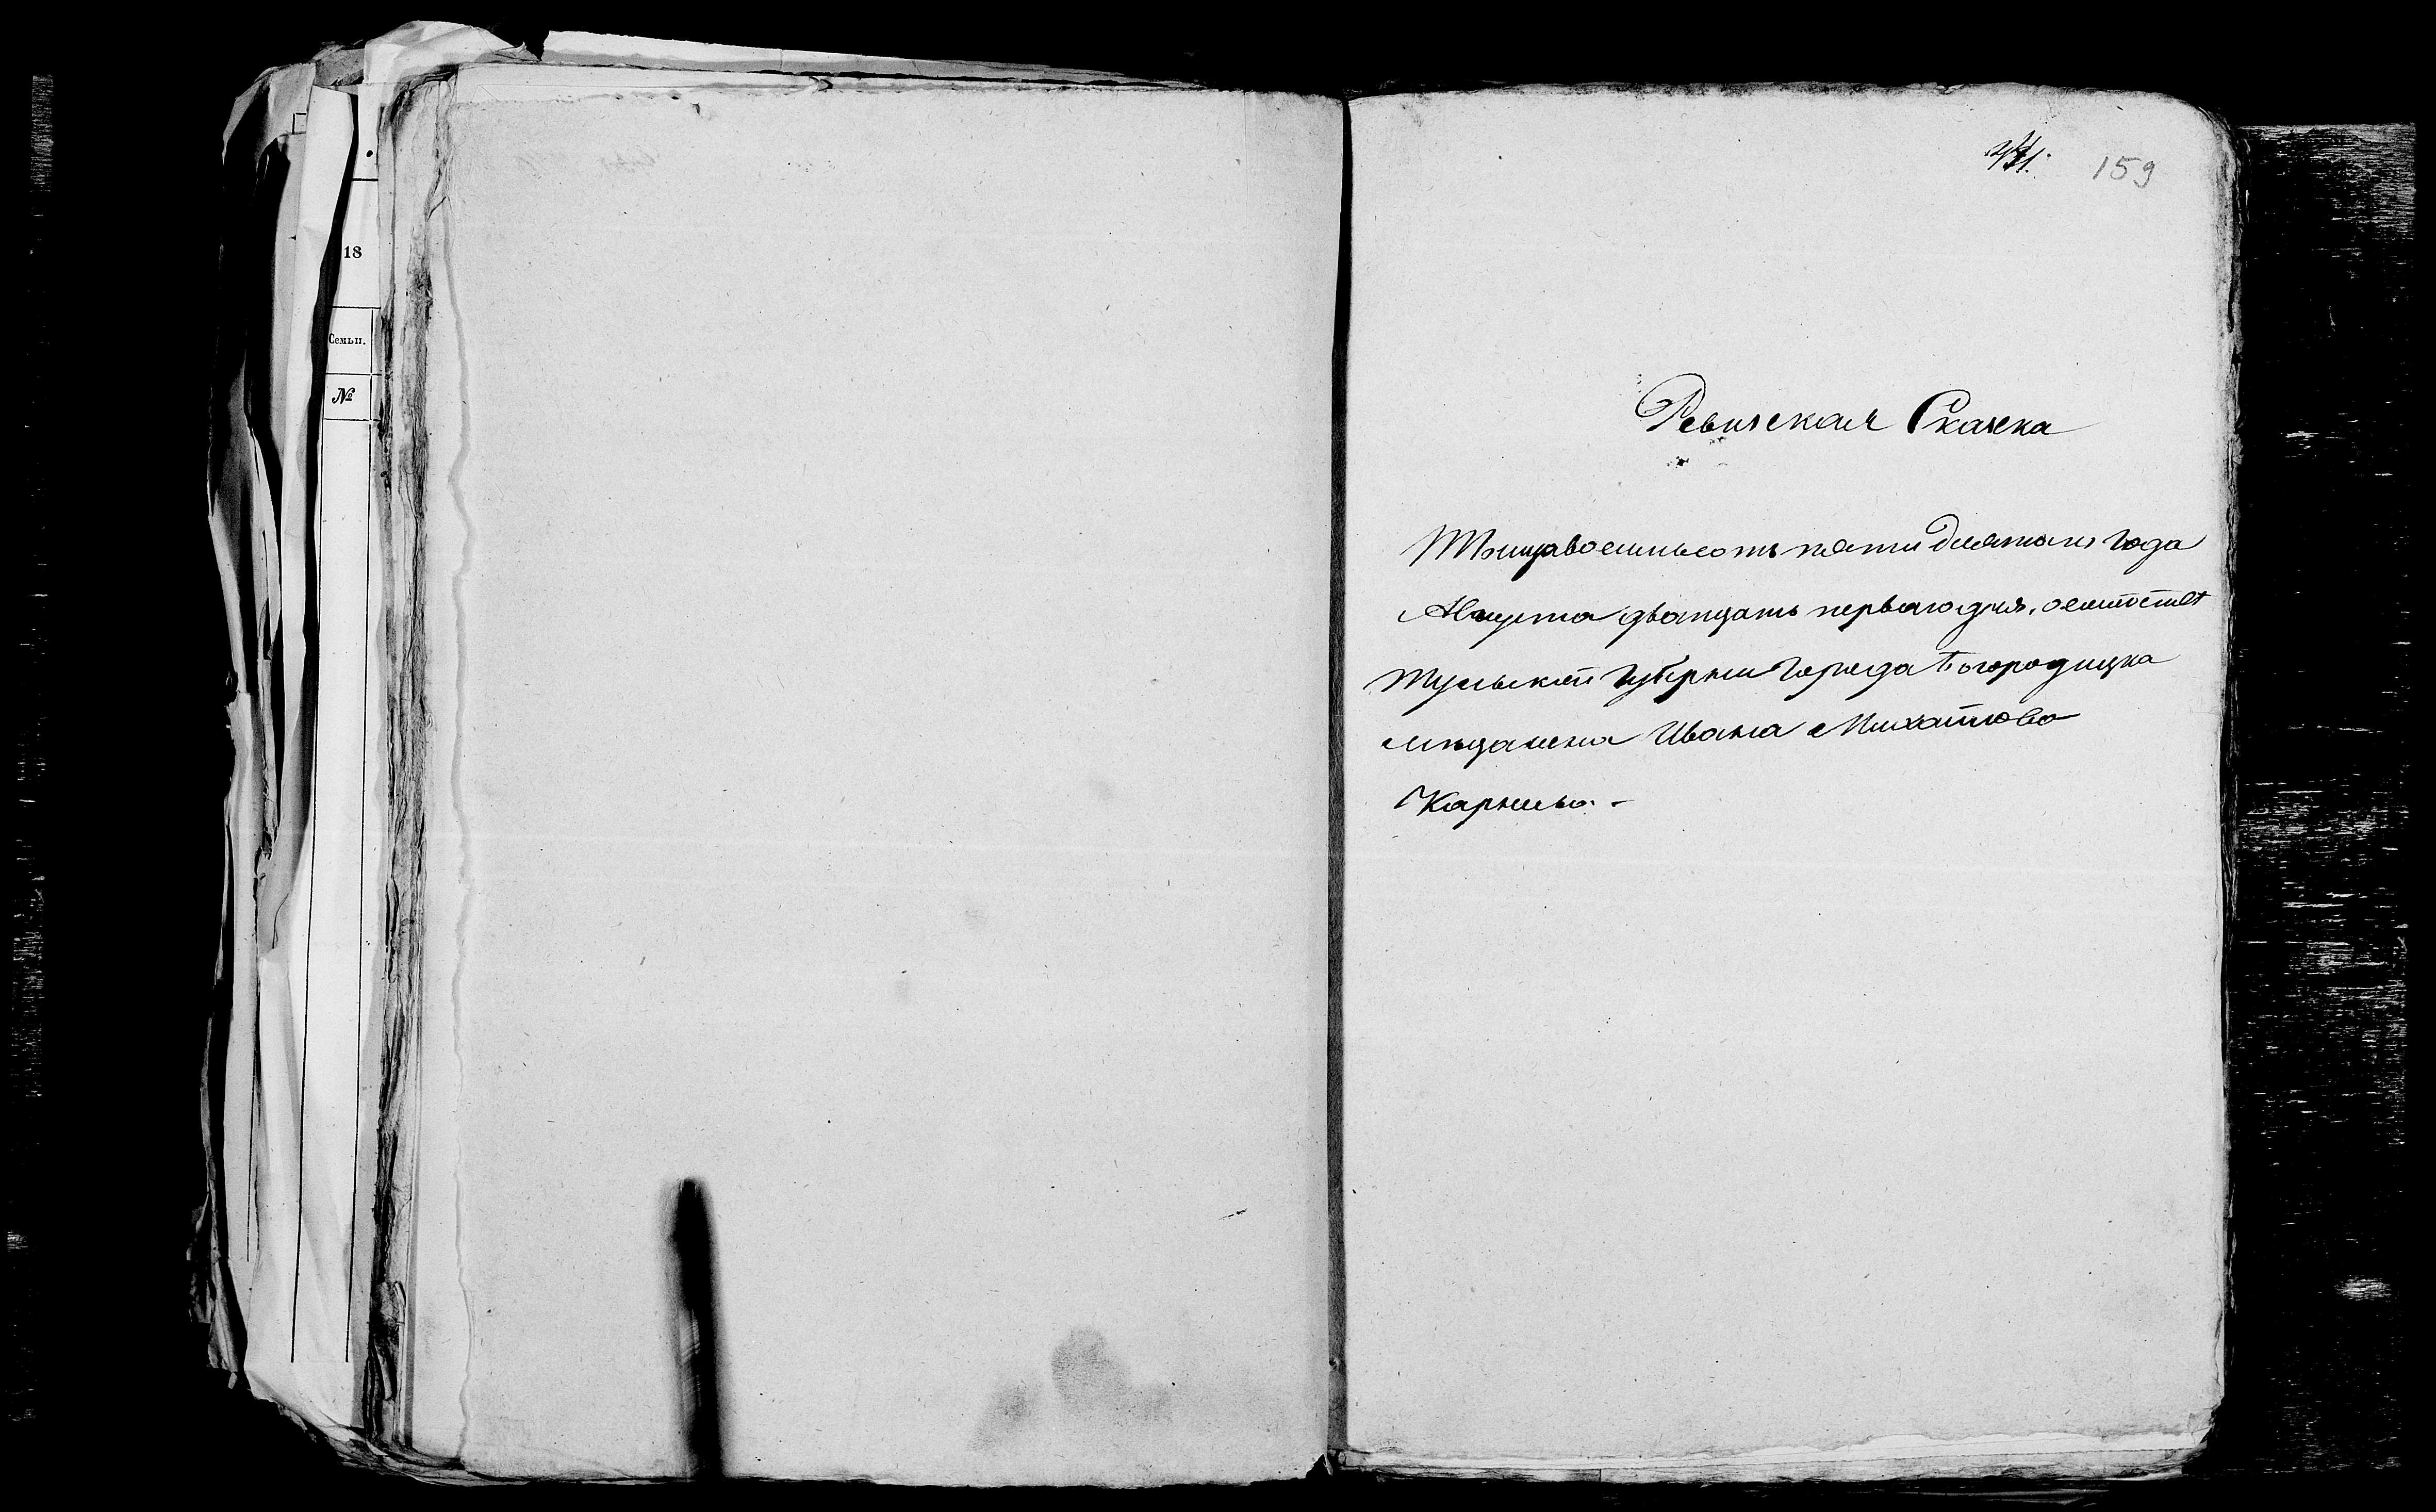 159
18
Семьи.
№
Ревизская Сказка
Тыща восемьсотъ пяти десятаго года
Августа двацать перваго дня, о состоит
Тульской губернии города Богородицка
мещанина Ивана Михайлова